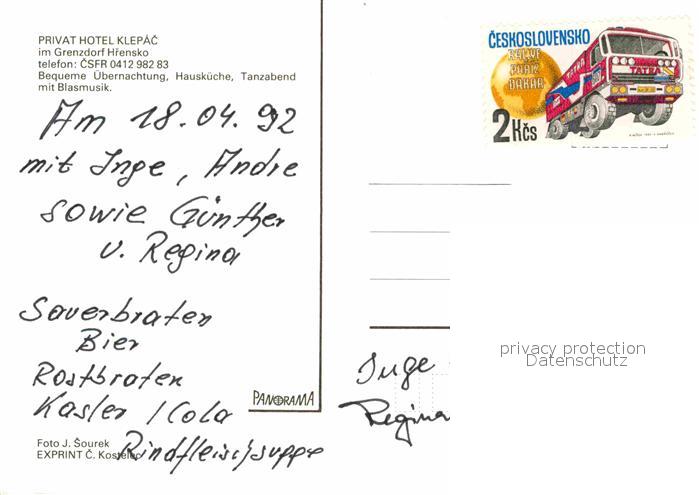 PRIVAT HOTEL KLEPÁČ
im Grenzdorf Hřensko
telefon: ČSFR 0412 982 83
Bequeme Übernachtung, Hausküche, Tanzabend
mit Blasmusik.
Am 18.04.92
mit Inge, Andre
sowie Günther
u. Regina
Sauerbraten
Bier
Rostbraten
Kasler / Cola
Rindfleischsuppe
PANORAMA
Foto J. Šourek
EXPRINT Č. Kostelec
ČESKOSLOVENSKO
RALLYE
PAŘÍŽ
DAKAR
TATRA
TATRA
2 Kčs
privacy protection
Datenschutz
Inge
Regina